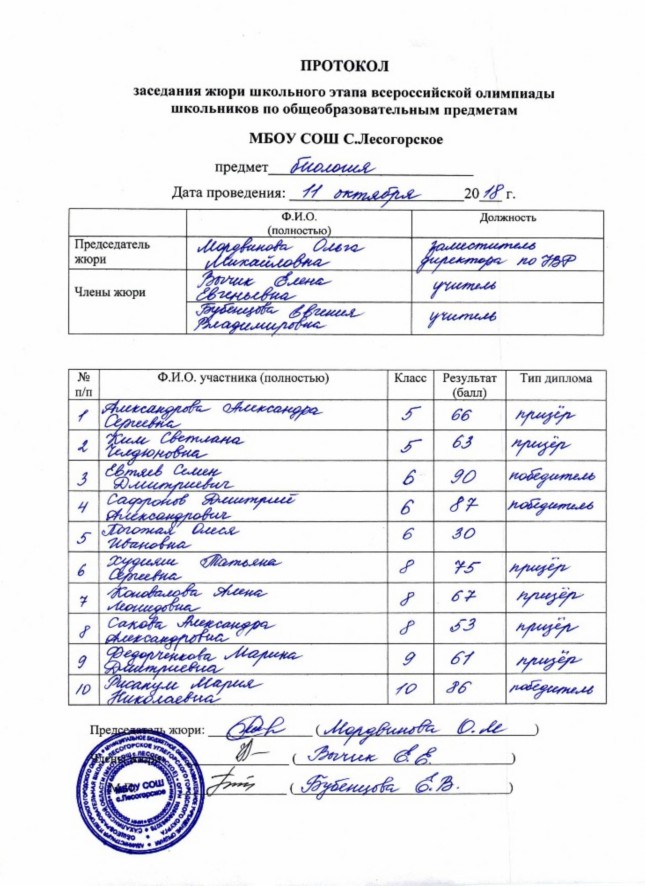 ПРОТОКОЛ
заседания жюри школьного этапа всероссийской олимпиады
школьников по общеобразовательным предметам
МБОУ СОШ С.Лесогорское
предмет биология
Дата проведения: 11 октября 2018 г.
Ф.И.О. (полностью) Должность
Председатель жюри Мордвинова Ольга Михайловна заместитель директора по УВР
Члены жюри Вычик Елена Евгеньевна учитель
Бубенцова Евгения Владимировна учитель
№ п/п Ф.И.О. участника (полностью) Класс Результат (балл) Тип диплома
1 Александрова Александра Сергеевна 5 66 призёр
2 Ким Светлана 5 63 призёр
3 Евтяев Семен Дмитриевич 6 90 победитель
4 Сафронов Дмитрий Александрович 6 87 победитель
5 Олеся Ивановна 6 30
6 Татьяна Сергеевна 8 75 призёр
7 Коновалова Алена Леонидовна 8 67 призёр
8 Сакова Александра Александровна 8 53 призёр
9 Федорченкова Марина Дмитриевна 9 61 призёр
10 Мария Николаевна 10 86 победитель
Председатель жюри: (Мордвинова О.М)
Члены жюри: (Вычик Е.Е.)
(Бубенцова Е.В.)
МБОУ СОШ
с.Лесогорское